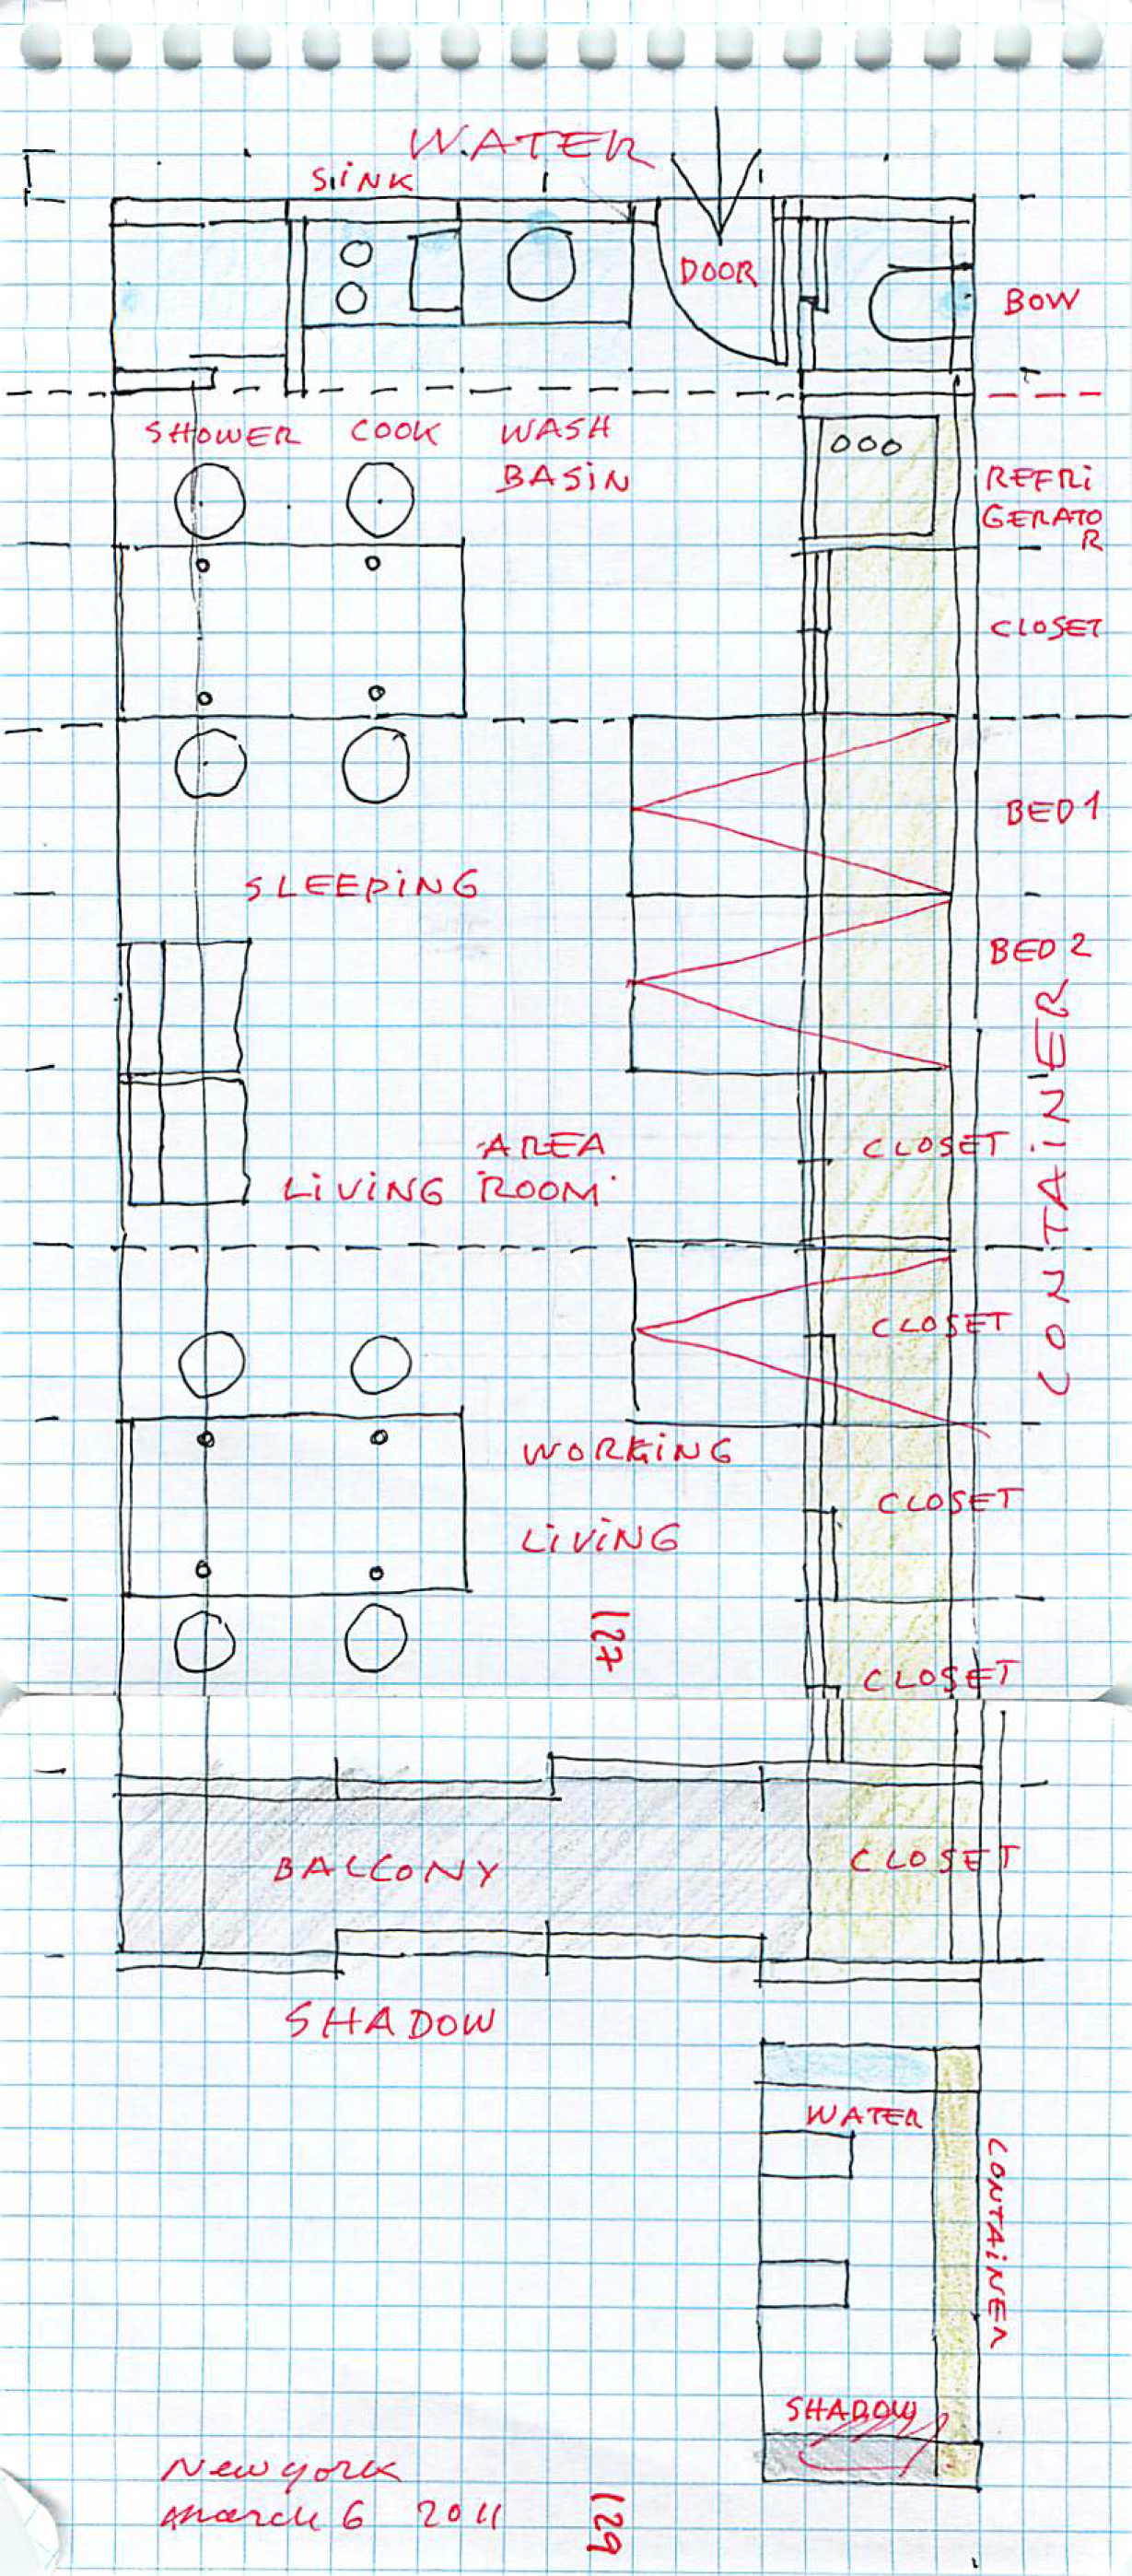 WATER
SINK
DOOR
BOW
SHOWER COOK WASH
BASIN
REFRI
GERATO
R
CLOSET
BED 1
SLEEPING
BED 2
CONTAINER
AREA
CLOSET
LIVING ROOM
CLOSET
WORKING
CLOSET
LIVING
127
CLOSET
BALCONY
CLOSET
SHADOW
WATER
CONTAINER
SHADOW
New york
march 6 2011
129